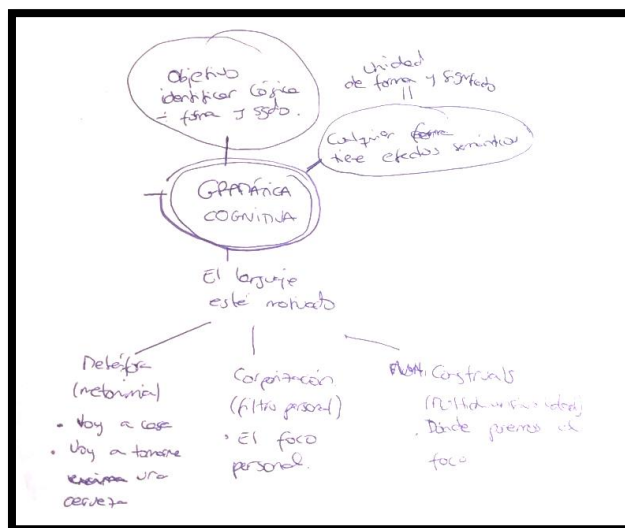 Objetivo
identificar lógica
÷ forma y sgdo.
unidad
de forma y sgfcado
||
Cualquier forma
tiene efectos semánticos
GRAMÁTICA
COGNITIVA
El lenguaje
está motivado
Metáfora
(metonimia)
• Voy a casa
• Voy a tomarme
una
cerveza
Corporización
(filtro personal)
• El foco
personal.
Construals
• Dónde ponemos el
foco